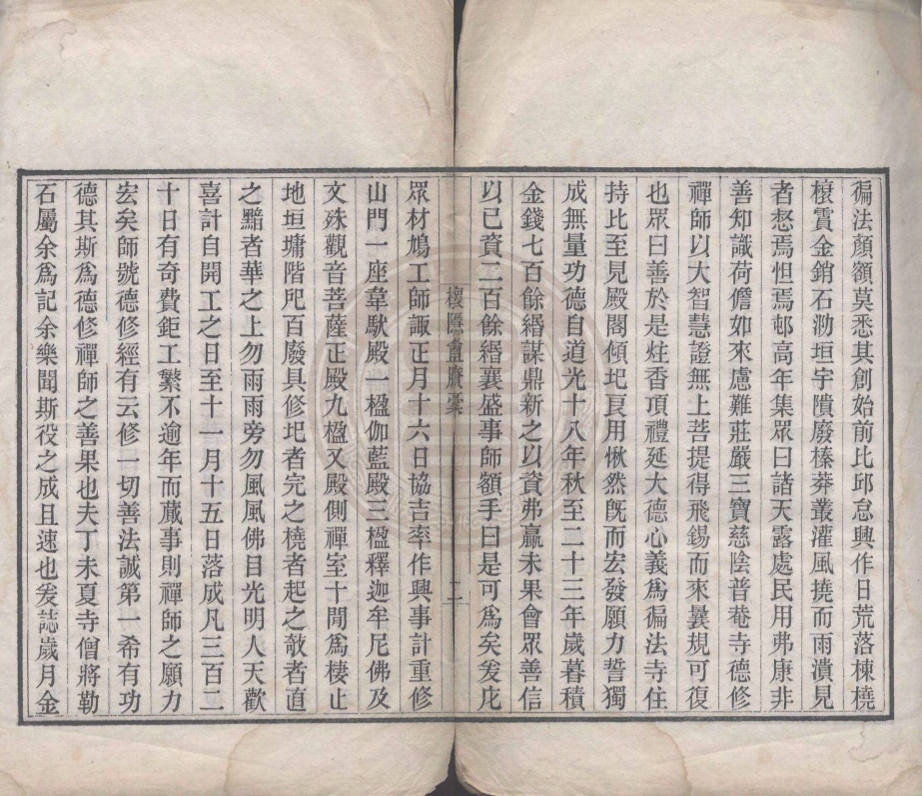 徧法顏額莫悉其創始前比邱怠興作日荒落棟橈
榱霣金銷石泐垣宇隤廢榛莽叢灌風撓而雨潰見
者惄焉怛焉邨高年集眾曰諸天露處民用弗康非
善知識荷儋如來慮難莊嚴三寶慈陰普菴寺德修
禪師以大智慧證無上菩提得飛錫而來曩規可復
也眾曰善於是炷香頂禮延大德心義爲徧法寺住
持比至見殿閣傾圮良用愀然旣而宏發願力誓獨
成無量功德自道光十八年秋至二十三年歲暮積
金錢七百餘緡謀鼎新之以資弗贏未果會眾善信
以已資二百餘緡襄盛事師額手曰是可爲矣爰庀
二
眾材鳩工師諏正月十六日協吉率作興事計重修
山門一座韋馱殿一楹伽藍殿三楹釋迦牟尼佛及
文殊觀音菩薩正殿九楹又殿側禪室十閒爲棲止
地垣墉階戺百廢具修圮者完之橈者起之敧者直
之黯者華之上勿雨雨旁勿風風佛目光明人天歡
喜計自開工之日至十一月十五日落成凡三百二
十日有奇費鉅工繁不逾年而蕆事則禪師之願力
宏矣師號德修經有云修一切善法誠第一希有功
德其斯爲德修禪師之善果也夫丁未夏寺僧將勒
石屬余爲記余樂聞斯役之成且速也爰誌歲月金